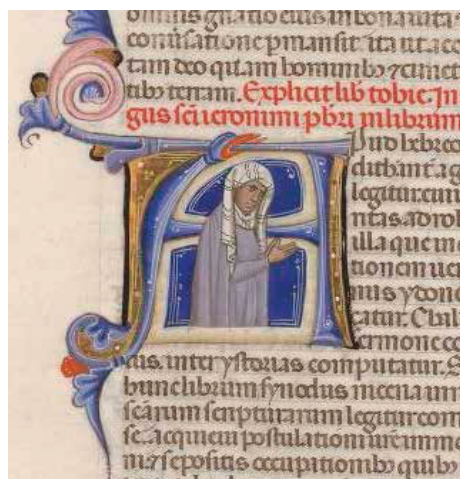 omnis gnatio eius in bona uita
conuisatione pmansit. ita ut acc
tam deo quam hominib; ⁊ cunct
tib; terram. Explicit lib tobie. In
gus sci ieronimi pbri in librum
A pud hebreo
dith int. ag
legitur. cuiu
ritas. ad rob
illa que in
tionem ueni
nius ydone
catur. Chal
sermone co
dis. inter ystorias computatur. S
hunc librum synodus nicena in num
scarum scripturarum legitur com
se. acquieui postulationi ure imme
ni. ⁊ sepositis occupitionib; quib;